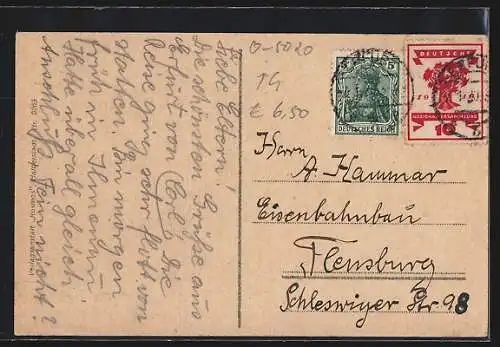 Liebe Eltern!
Die schönsten Grüße aus
Erfurt von Carl. Die
Reise ging sehr flott von
statten. Bin morgen
früh in Ilmenau.
Hatte überall gleich
Anschluß. Fein nicht?
O-5020
14
€ 6,50
5
DEUTSCHES REICH
DEUTSCHE
1919
NATIONALVERSAMMLUNG
10
Herrn
A. Hammar
Eisenbahnbau
Flensburg
Schleswiger Str 98